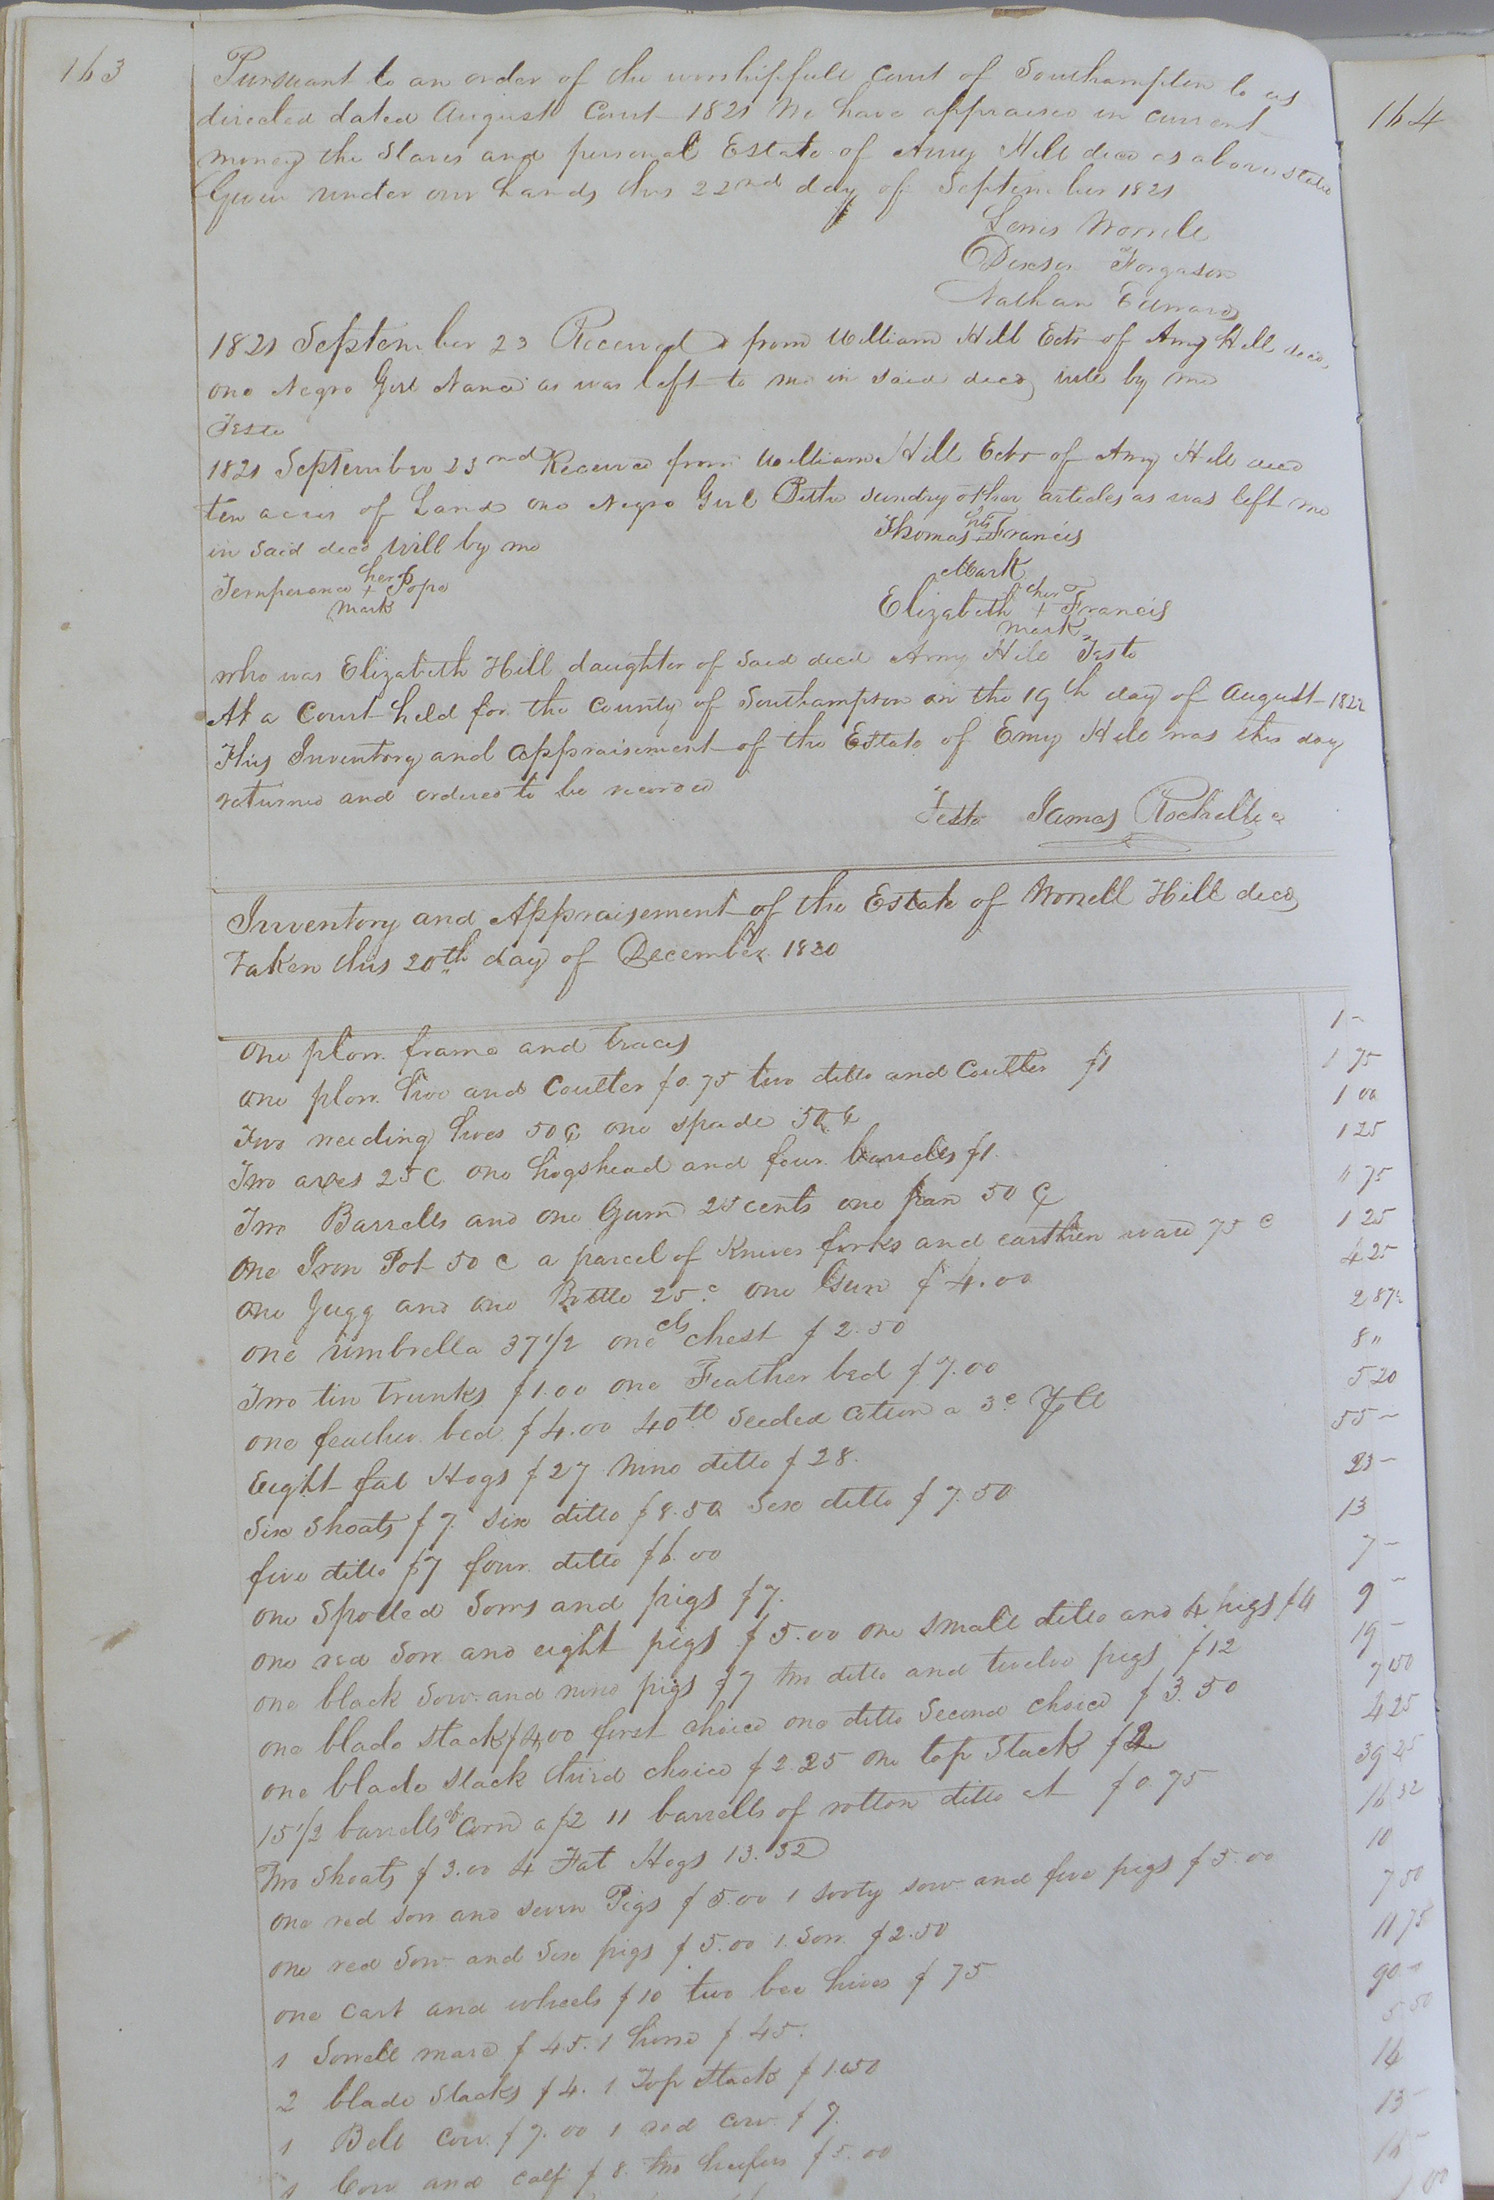 163
164
Pursuant to an order of the worshipfull Court of Southampton to us
directed dated August Court 1821 We have appraised in current
money the Slaves and personal Estate of Amy Hill decd as above stated
Given under our hands this 22nd day of September 1821
Lewis Worrell
Dixson Forgason
Nathan Edwards
1821 September 23 Received from William Hill Extr of Amy Hill decd,
one Negro Girl Nance as was left to me in said decd will by me
Teste
1821 September 23nd Received from William Hill Extr of Amy Hill decd
ten acres of Land one Negro Girl sundry other articles as was left me
in said decd will by me
Thomas his Francis
Mark
Temperance her + Pope
mark
Elizabeth her + Francis
mark
who was Elizabeth Hill daughter of said decd Amy Hill Teste
At a Court held for the County of Southampton on the 19th day of August 1822
This Inventory and appraisement of the Estate of Emy Hill was this day
returned and ordered to be recorded
Teste James Rochelle c
Inventory and Appraisement of the Estate of Worrell Hill decd
Taken this 20th day of December 1820
One plow frame and traces 1 -
one plow hoe and Coulter $0.75 two ditto and Coulter $1 1 75
Two weeding hoes 50 ₵ one spade 50 ₵ 1 00
Two axes 25 C one hogshead and four barrells $1. 1 25
Two Barrells and one Gum 25 cents one pan 50 ₵ " 75
One Iron Pot 50 C a parcel of Knives forks and earthen ware 75 c 1 25
one Jugg and one Bottle 25 c one Gun $4.00 4 25
one umbrella 37 1/2 cts one chest $2.50 2 87½
Two tin trunks $1.00 one Feather bed $7.00 8 "
one feather bed $4.00 40 lb seeded cotton a 3 c 5 20
Eight fat Hogs $27 Nine ditto $28. 55 -
Six Shoats $7. six ditto $8.50 Six ditto $7.50 23 -
five ditto $7 four ditto $6.00 13
one Spotted Sow and pigs $7. 7 -
one red Sow and eight pigs $5.00 one small ditto and 4 pigs $4 9 -
one black Sow and nine pigs $7 two ditto and twelve pigs $12 19 -
one blade stack $4.00 first choice one ditto Second choice $3.50 7 50
one blade stack third choice $2.25 one top Stack $2 4 25
15 1/2 barrells of Corn a $2 11 barrells of rotton ditto at $0.75 39 25
Two Shoats $3.00 4 Fat Hogs 13.32 16 32
one red sow and seven Pigs $5.00 1 sooty sow and five pigs $5.00 10
one red Sow and Six pigs $5.00 1. Sow $2.50 7 50
one Cart and wheels $10 two bee hives $75 11 75
1 Sorrell mare $45. 1 horse $45. 90 -
2 blade Stacks $4. 1 Top Stack $1.50 5 50
1 Bell Cow $7.00 1 red cow $7. 14
1 Cow and calf $8. two heifers $5.00 13 -
16 -